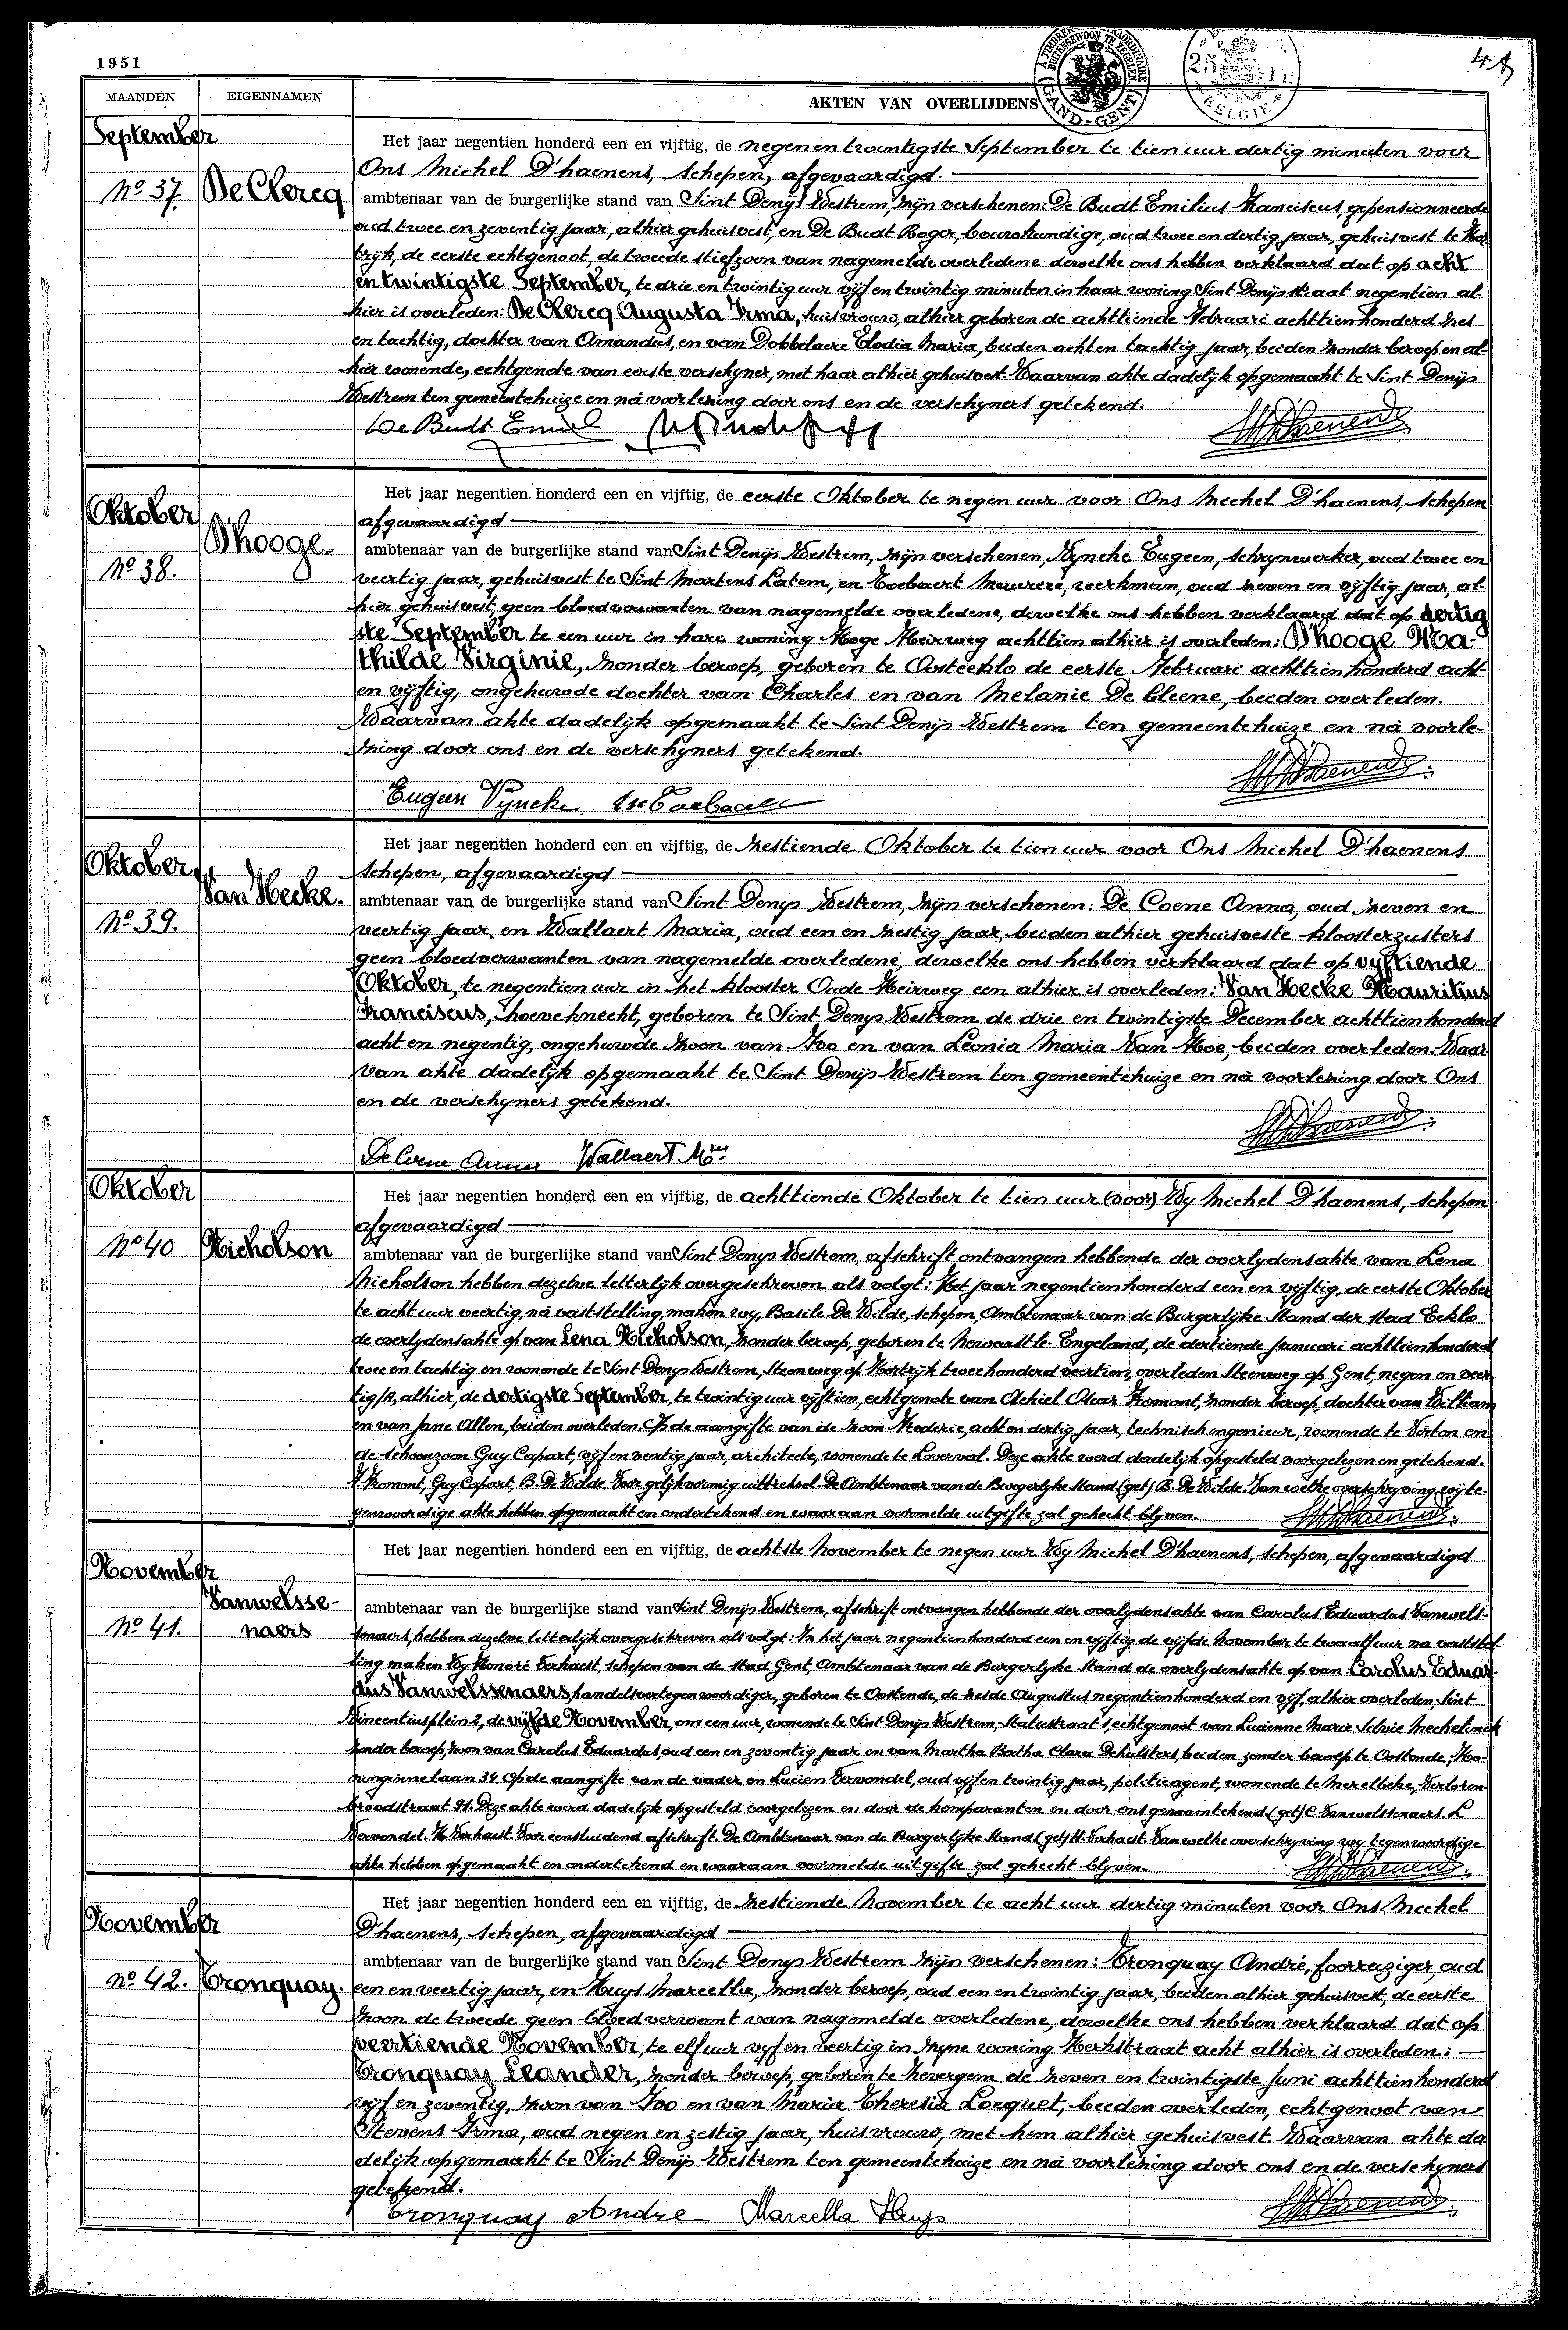 1951
MAANDEN
EIGENNAMEN
AKTEN VAN OVERLIJDENS
GAND-GENT
BELGIE
September
Nº 37.
De Clercq
Het jaar negentien honderd een en vijftig, de negen en twintigste September te tien uur dertig minuten voor
Ons Michel D'haenens, schepen, afgevaardigd.
ambtenaar van de burgerlijke stand van Sint Denijs Westrem, zijn verschenen: De Budt Emilius Franciscus, gepensionneerde
oud twee en zeventig jaar, alhier gehuisvest, en De Budt Roger, bouwkundige, oud twee en dertig jaar, gehuisvest te Kor
trijk, de eerste echtgenoot, de tweede stiefzoon van nagemelde overledene dewelke ons hebben verklaard dat op acht
en twintigste September, te drie en twintig uur vijf en twintig minuten in haar woning Sint Denijsstraat negentien al-
hier is overleden: De Clercq Augusta Irma, huisvrouw, alhier geboren de achttiende Februari achttienhonderd zes
en tachtig, dochter van Amandus, en van Dobbelaere Elodia Maria, beiden acht en tachtig jaar, beiden zonder beroep en al-
hier wonende, echtgenote van eerste verschyner, met haar alhier gehuisvest. Waarvan akte dadelijk opgemaakt te Sint Denijs
Westrem ten gemeentehuize en na voorlezing door ons en de verschyners getekend.
De Budt Emiel
Oktober
Nº 38.
D'hooge.
Het jaar negentien honderd een en vijftig, de eerste Oktober te negen uur voor Ons Michel D'haenens, schepen
afgevaardigd
ambtenaar van de burgerlijke stand van Sint Denijs Westrem, zijn verschenen, Vyncke Eugeen, schrynwerker, oud twee en
veertig jaar, gehuisvest te Sint Martens Latem, en Toebaert Maurice, werkman, oud zeven en vijftig jaar, al-
hier gehuisvest, geen bloedverwanten van nagemelde overledene, dewelke ons hebben verklaard dat op dertig
ste September te een uur in hare woning Hoge Heirweg achttien alhier is overleden: D'hooge Ma-
thilde Virginie, zonder beroep, geboren te Oosteeklo de eerste Februari achttienhonderd acht
en vijftig, ongehuwde dochter van Charles en van Melanie De Cleene, beiden overleden.
Waarvan akte dadelijk opgemaakt te Sint Denijs Westrem ten gemeentehuize en na voorle-
zing door ons en de verschyners getekend.
Eugeen Vyncke
Oktober
Nº 39.
Van Hecke.
Het jaar negentien honderd een en vijftig, de zestiende Oktober te tien uur voor Ons Michel D'haenens
schepen, afgevaardigd
ambtenaar van de burgerlijke stand van Sint Denys Westrem, zijn verschenen: De Coene Anna, oud zeven en
veertig jaar, en Wallaert Maria, oud een en zestig jaar, beiden alhier gehuisveste kloosterzusters
geen bloedverwanten van nagemelde overledene, dewelke ons hebben verklaard dat op vyftiende
Oktober, te negentien uur in het klooster Oude Heirweg een alhier is overleden: Van Hecke Mauritius
Franciscus, hoeveknecht, geboren te Sint Denys Westrem de drie en twintigste December achttienhonderd
acht en negentig, ongehuwde zoon van Ivo en van Leonia Maria Van Hoe, beiden overleden. Waar
van akte dadelijk opgemaakt te Sint Denijs Westrem ten gemeentehuize en na voorlezing door Ons
en de verschyners getekend.
De Coene Anna Wallaert Mia
Oktober
Nº 40
Nicholson
Het jaar negentien honderd een en vijftig, de achttiende Oktober te tien uur (voor) Wy Michel D'haenens, schepen
afgevaardigd
ambtenaar van de burgerlijke stand van Sint Denys Westrem, afschrift ontvangen hebbende der overlydensakte van Lena
Nicholson hebben dezelve letterlijk overgeschreven als volgt: Het jaar negentienhonderd een en vijftig, de eerste Oktober
te acht uur veertig, na vaststelling, maken wy, Basile De Wilde, schepen, Ambtenaar van de Burgerlijke Stand der stad Eeklo
de overlydensakte op van Lena Nicholson, zonder beroep, geboren te Newcastle Engeland, de dertiende Januari achttienhonderd
twee en tachtig en wonende te Sint Denys Westrem, Steenweg op Kortrijk tweehonderd veertien, overleden Steenweg op Gent, negen en veer
tig/A, alhier, de dertigste September, te twintig uur vijftien, echtgenote van Achiel Oscar Fromont, zonder beroep, dochter van William
en van Jane Allen, beiden overleden. Op de aangifte van de zoon Frederic, acht en dertig jaar, technisch ingenieur, wonende te Virton en
de schoonzoon Guy Capart, vijf en veertig jaar, architecte, wonende te Loverval. Deze akte werd dadelijk opgesteld voorgelezen en getekend.
F. Fromont, Guy Capart, B. De Wilde. Voor gelijkvormig uittreksel. De Ambtenaar van de Burgerlijke Stand (get) B. De Wilde. Van welke overschryving wij te-
genwoordige akte hebben opgemaakt en ondertekend en waaraan voormelde uitgifte zal gehecht blyven.
November
Nº 41.
Vanwelsse-
naers
Het jaar negentien honderd een en vijftig, de achtste November te negen uur Wy Michel D'haenens, schepen, afgevaardigd
ambtenaar van de burgerlijke stand van Sint Denijs Westrem, afschrift ontvangen hebbende der overlydensakte van Carolus Eduardus Vanwels-
senaers, hebben dezelve letterlijk overgeschreven als volgt: In het jaar negentienhonderd een en vijftig de vijfde November te twaalf uur na vaststel
ling maken Wy Honoré Verhaest, schepen van de stad Gent, Ambtenaar van de Burgerlyke Stand de overlydensakte op van Carolus Eduar-
dus Vanwelssenaers, handelsvertegenwoordiger, geboren te Oostende, de zesde Augustus negentienhonderd en vijf, alhier overleden, Sint
Vincentiusplein 2, de vijfde November, om een uur, wonende te Sint Denijs Westrem, Statiestraat 1, echtgenoot van Lucienne Marie Silvie Mechelinck
zonder beroep, zoon van Carolus Eduardus, oud een en zeventig jaar en van Martha Bertha Clara Dehulsters, beiden zonder beroep te Oostende, Ko-
ninginnelaan 34. Op de aangifte van de vader en Lucien Vervondel, oud vijf en twintig jaar, politieagent, wonende te Merelbeke, Verloren-
broodstraat 91. Deze akte werd dadelijk opgesteld voorgelezen en door de komparanten en door ons genaamtekend (get) C. Vanwelssenaers. L
Vervondel. H. Verhaest. Voor eensluidend afschrift. De Ambtenaar van de Burgerlijke Stand (get) H. Verhaest. Van welke overschryving wy tegenwoordige
akte hebben opgemaakt en ondertekend en waaraan voormelde uitgifte zal gehecht blyven.
November
Nº 42.
Tronquay.
Het jaar negentien honderd een en vijftig, de zestiende November te acht uur dertig minuten voor Ons Michel
D'haenens, schepen, afgevaardigd
ambtenaar van de burgerlijke stand van Sint Denys Westrem zijn verschenen: Tronquay André, foorreiziger, oud
een en veertig jaar, en Huys Marcella, zonder beroep, oud een en twintig jaar, beiden alhier gehuisvest, de eerste
zoon de tweede geen bloedverwant van nagemelde overledene, dewelke ons hebben verklaard dat op
veertiende November, te elf uur vyf en veertig in zyne woning Kerkstraat acht alhier is overleden:
Tronquay Leander, zonder beroep, geboren te Nevergem de zeven en twintigste Juni achttienhonderd
vijf en zeventig, zoon van Ivo en van Maria Theresia Locquet, beiden overleden, echtgenoot van
Stevens Irma, oud negen en zestig jaar, huisvrouw, met hem alhier gehuisvest. Waarvan akte da
delijk opgemaakt te Sint Denijs Westrem ten gemeentehuize en na voorlezing door ons en de verschyners
getekend.
Tronquay Andre Marcella Huys